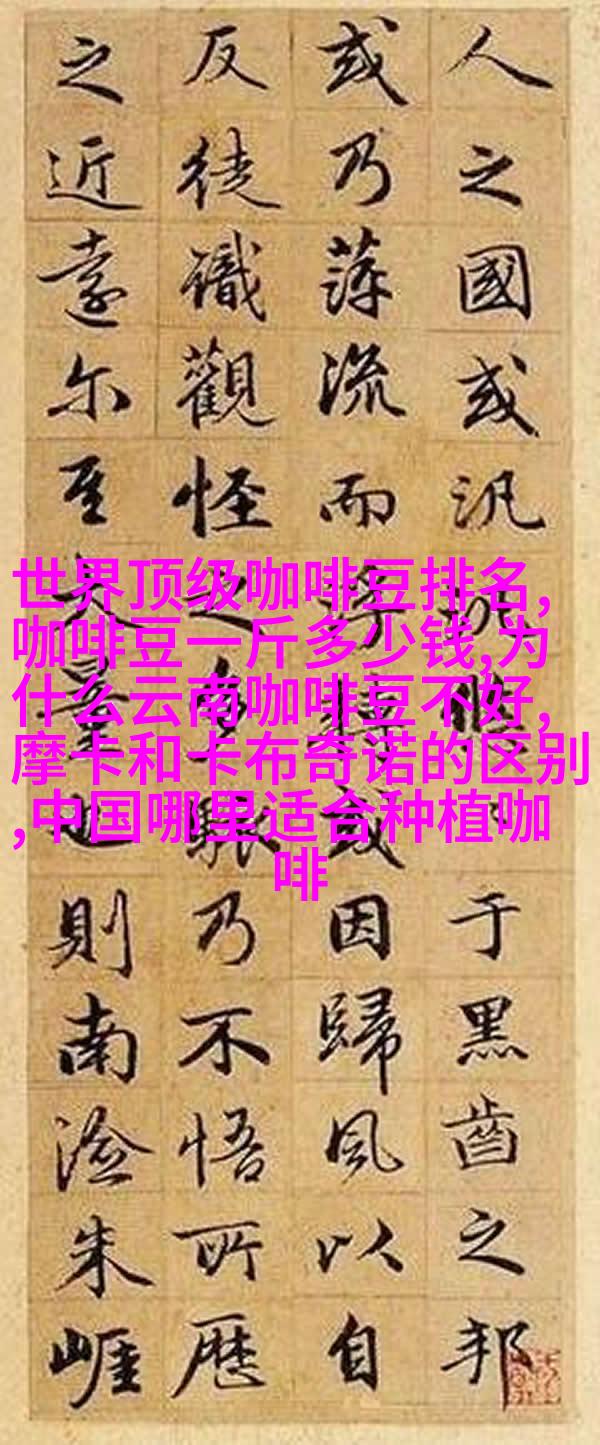 人之國或汎于黑齒之邦
或乃萍流而浮轉或因歸風以自
反徒識觀怪之多駭乃不悟所歷
之近遠尔至大量也則南澰朱崕
世界顶级咖啡豆排名,
咖啡豆一斤多少钱,为
什么云南咖啡豆不好,
摩卡和卡布奇诺的区别
,中国哪里适合种植咖
啡